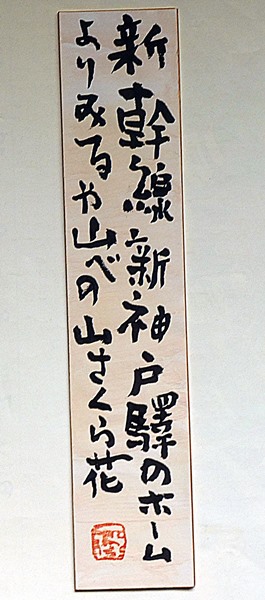 新幹線新神戸驛のホーム
よりみるや山べの山さくら花